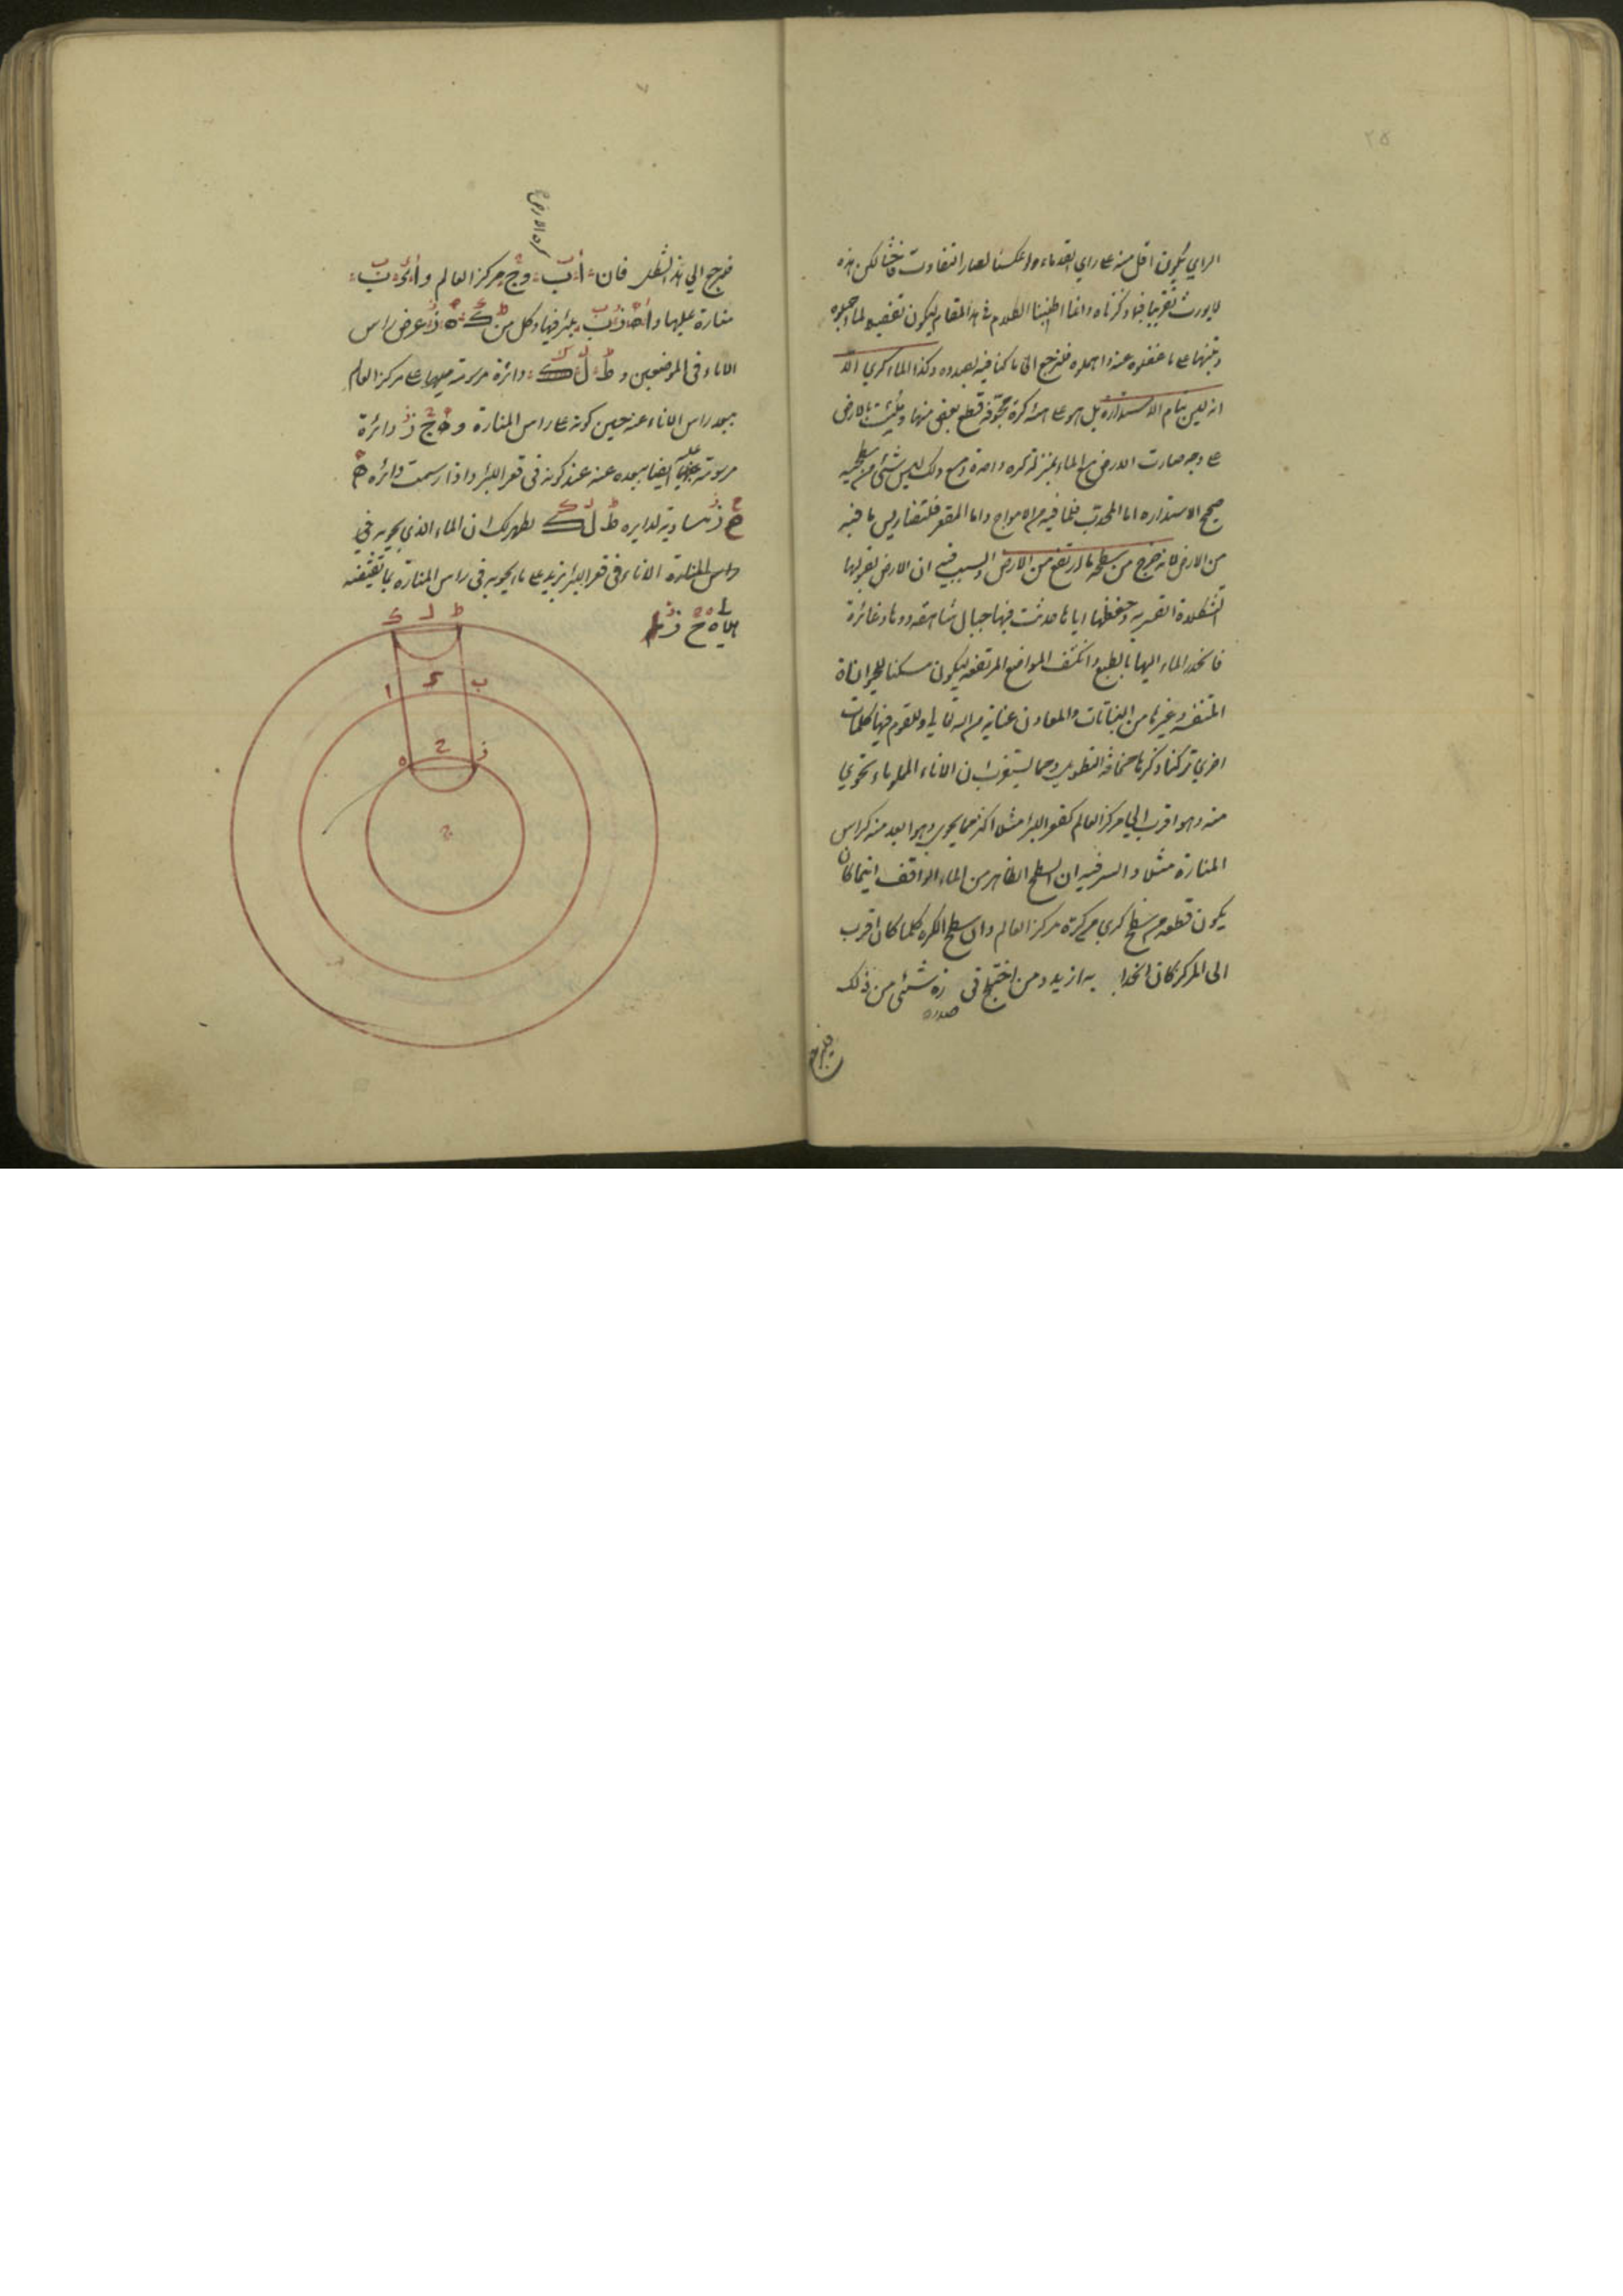 ٢٥
الراي يكون اقل منه على راي القدماء ولو عكسنا لصار التفاوت فاحشا لكن هذه
لا يورث تقريبا فيما ذكرناه وانما اطنبنا الكلام في هذا المقام ليكون تفصيلا لما اجملوه
وتنبيها على ما غفلوا عنه واهملوه فلنرجع الى ما كنا فيه بصدده وكذا الماء كري الا
انه ليس بتام الاستدارة بل هو على هيئة كرة مجوفة قطع بعض منها وملئت بالارض
على وجه صارت الارض مع الماء بمنزلة كرة واحدة ومع ذلك ليس شئ من سطحيه
صحيح الاستدارة اما المحدب فلما فيه من الامواج واما المقعر فلتضاريس ما فيه
من الارض لانه خرج من سطحه ما ارتفع من الارض والسبب فيه ان الارض لقبولها
التشكلات القسرية وحفظها اياها حدثت فيها جبال شاهقة ووهاد غائرة
فانحدر الماء اليها بالطبع وانكشف المواضع المرتفعة ليكون مسكنا للحيوانات
المتنفسة وغيرها من النباتات والمعادن عناية من الله تعالى وللقوم فيها كلمات
اخرى تركنا ذكرها مخافة التطويل ومما يستغرب ان الاناء المملو ماء يحوي
منه وهو اقرب الى مركز العالم كقعر البئر مثلا اكثر مما يحوي وهو ابعد منه كراس
المنارة مثلا والسر فيه ان السطح الظاهر من الماء الواقف اينما كان
يكون قطعة من سطح كري مركزه مركز العالم وان سطح الكرة كلما كان اقرب
الى المركز كان انحدابه ازيد ومن اختلج في صدره شئ من ذلك
فليرجع
كرة الارض
فليرجع الى هذا الشكل فان ا ب و ج مركز العالم و ا ي ب
منارة عليها و ا ه ز ب بئر فيها وكل من ط ك ه ز عرض راس
الاناء في الموضعين و ط ل ك دائرة مرسومة على مركز العالم
ببعد راس الاناء عنه حين كونه على راس المنارة و ه ح ز دائرة
مرسومة عليه ايضا ببعده عنه عند كونه في قعر البئر واذا رسمت دائرة ه
ح ز مساوية لدايرة ط ل ك يظهر لك ان الماء الذي يحويه في
راس المنارة الاناء في قعر البئر يزيد على ما يحويه في راس المنارة بما تقتضيه
ه ح ز
ط ل ك
ب ا
ز ح ه